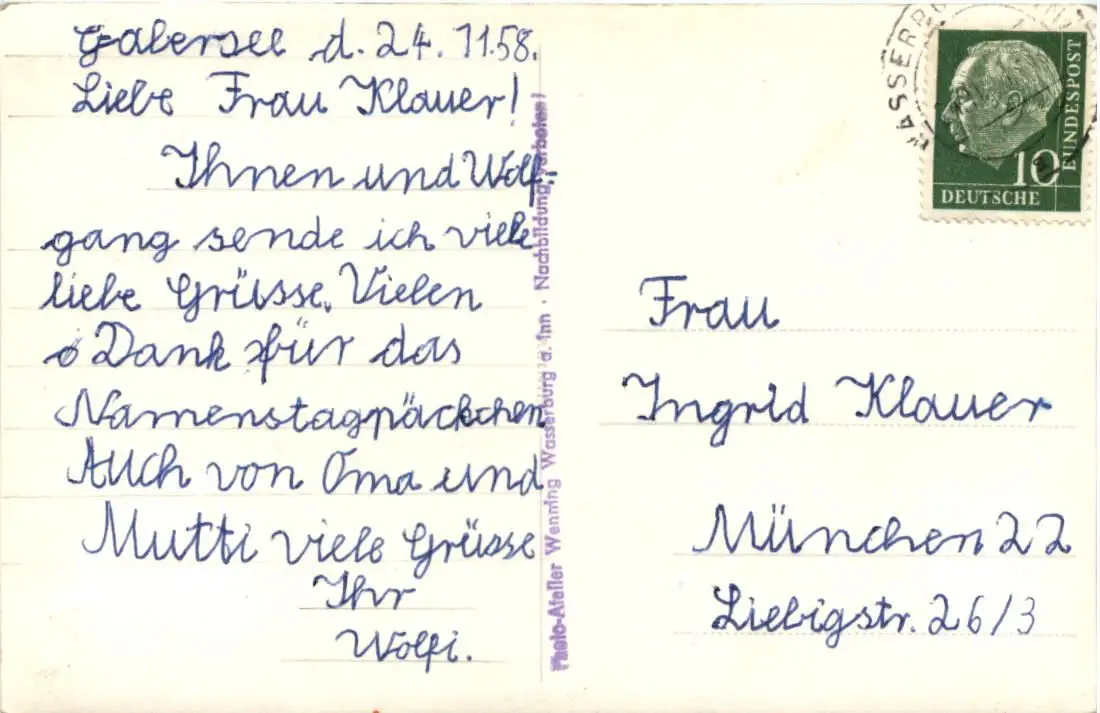 Gabersee d. 24. 11.58.
Liebe Frau Klauer!
Ihnen und Wolf-
gang sende ich viele
liebe Grüsse. Vielen
Dank für das
Namenstagpäckchen
Auch von Oma und
Mutti viele Grüsse
Ihr
Wolfi.
Photo-Atelier Wenning Wasserburg a. Inn · Nachbildung verboten!
WASSERBU
10
DEUTSCHE
BUNDESPOST
Frau
Ingrid Klauer
München 22
Liebigstr. 26/3